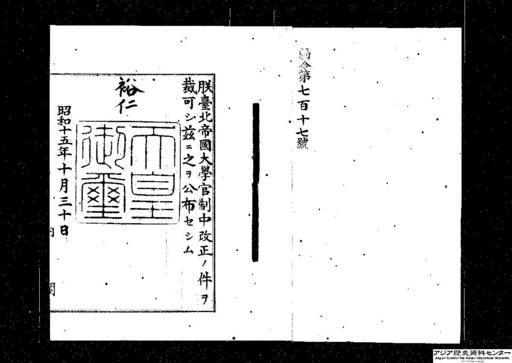 勅令第七百十七號
朕臺北帝國大學官制中改正ノ件ヲ
裁可シ茲ニ之ヲ公布セシム
裕仁
天皇
御璽
昭和十五年十月三十日
内
閣
アジア歴史資料センター
Japan Center for Asian Historical Records